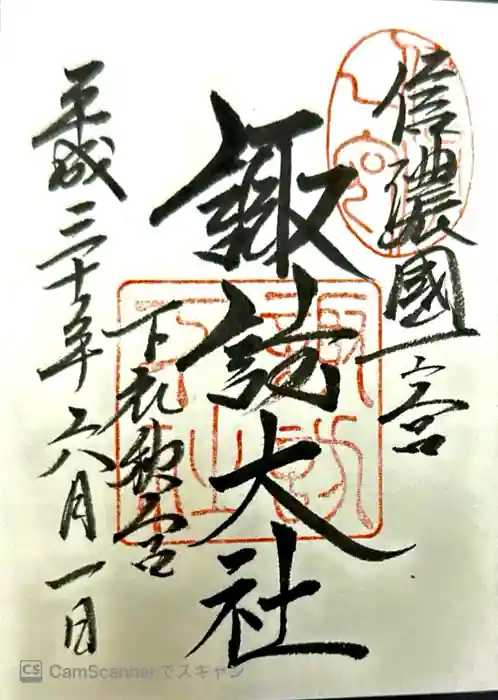 信濃國一宮
諏訪大社
下社秋宮
平成三十年六月一日
CamScannerでスキャン